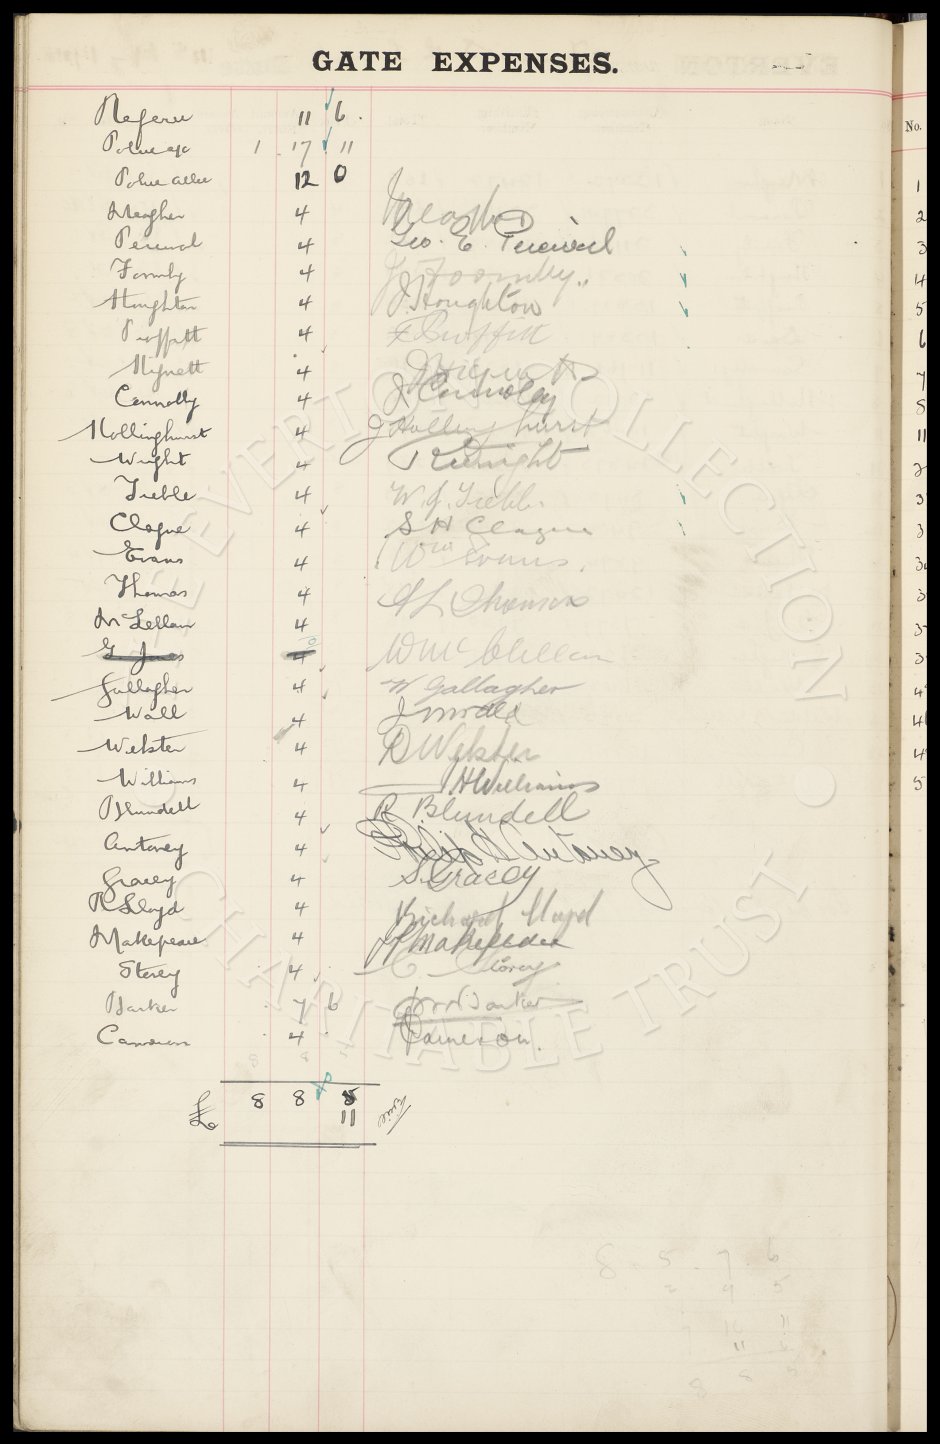 GATE EXPENSES.
Referee 11 6
Police a/c 1 17 11
Police 12 0
Meagher 4
Percival 4 Geo. E. Percival
Formby 4 J Foormby
Houghton 4 J. Houghton
Proffitt 4 Proffitt
Hignett 4
Connolly 4 J Connolly
Hollinghurst 4 J Hollinghurst
Wright 4 R Wright
Treble 4 W. J. Treble
Clague 4 S H Clague
Evans 4 Wm Evans.
Thomas 4
McLellan 4
G Jones 4 Wm McClellan
Gallagher 4 W Gallagher
Wall 4
Webster 4 R Webster
Williams 4 H Williams
Blundell 4 R Blundell
Antoney 4 Antoney
Gracey 4 S. Gracey
R Lloyd 4 Richard Lloyd
Makepeace 4 Makepeace
Storey 4 Storey
Barker 7 6 Barker
Cameron 4 Cameron.
£ 8 8 5
11
8 5 7 6
9 5
11
8 8 5
No.
1
2
3
4
5
6
7
8
11
THE EVERTON COLLECTION CHARITABLE TRUST